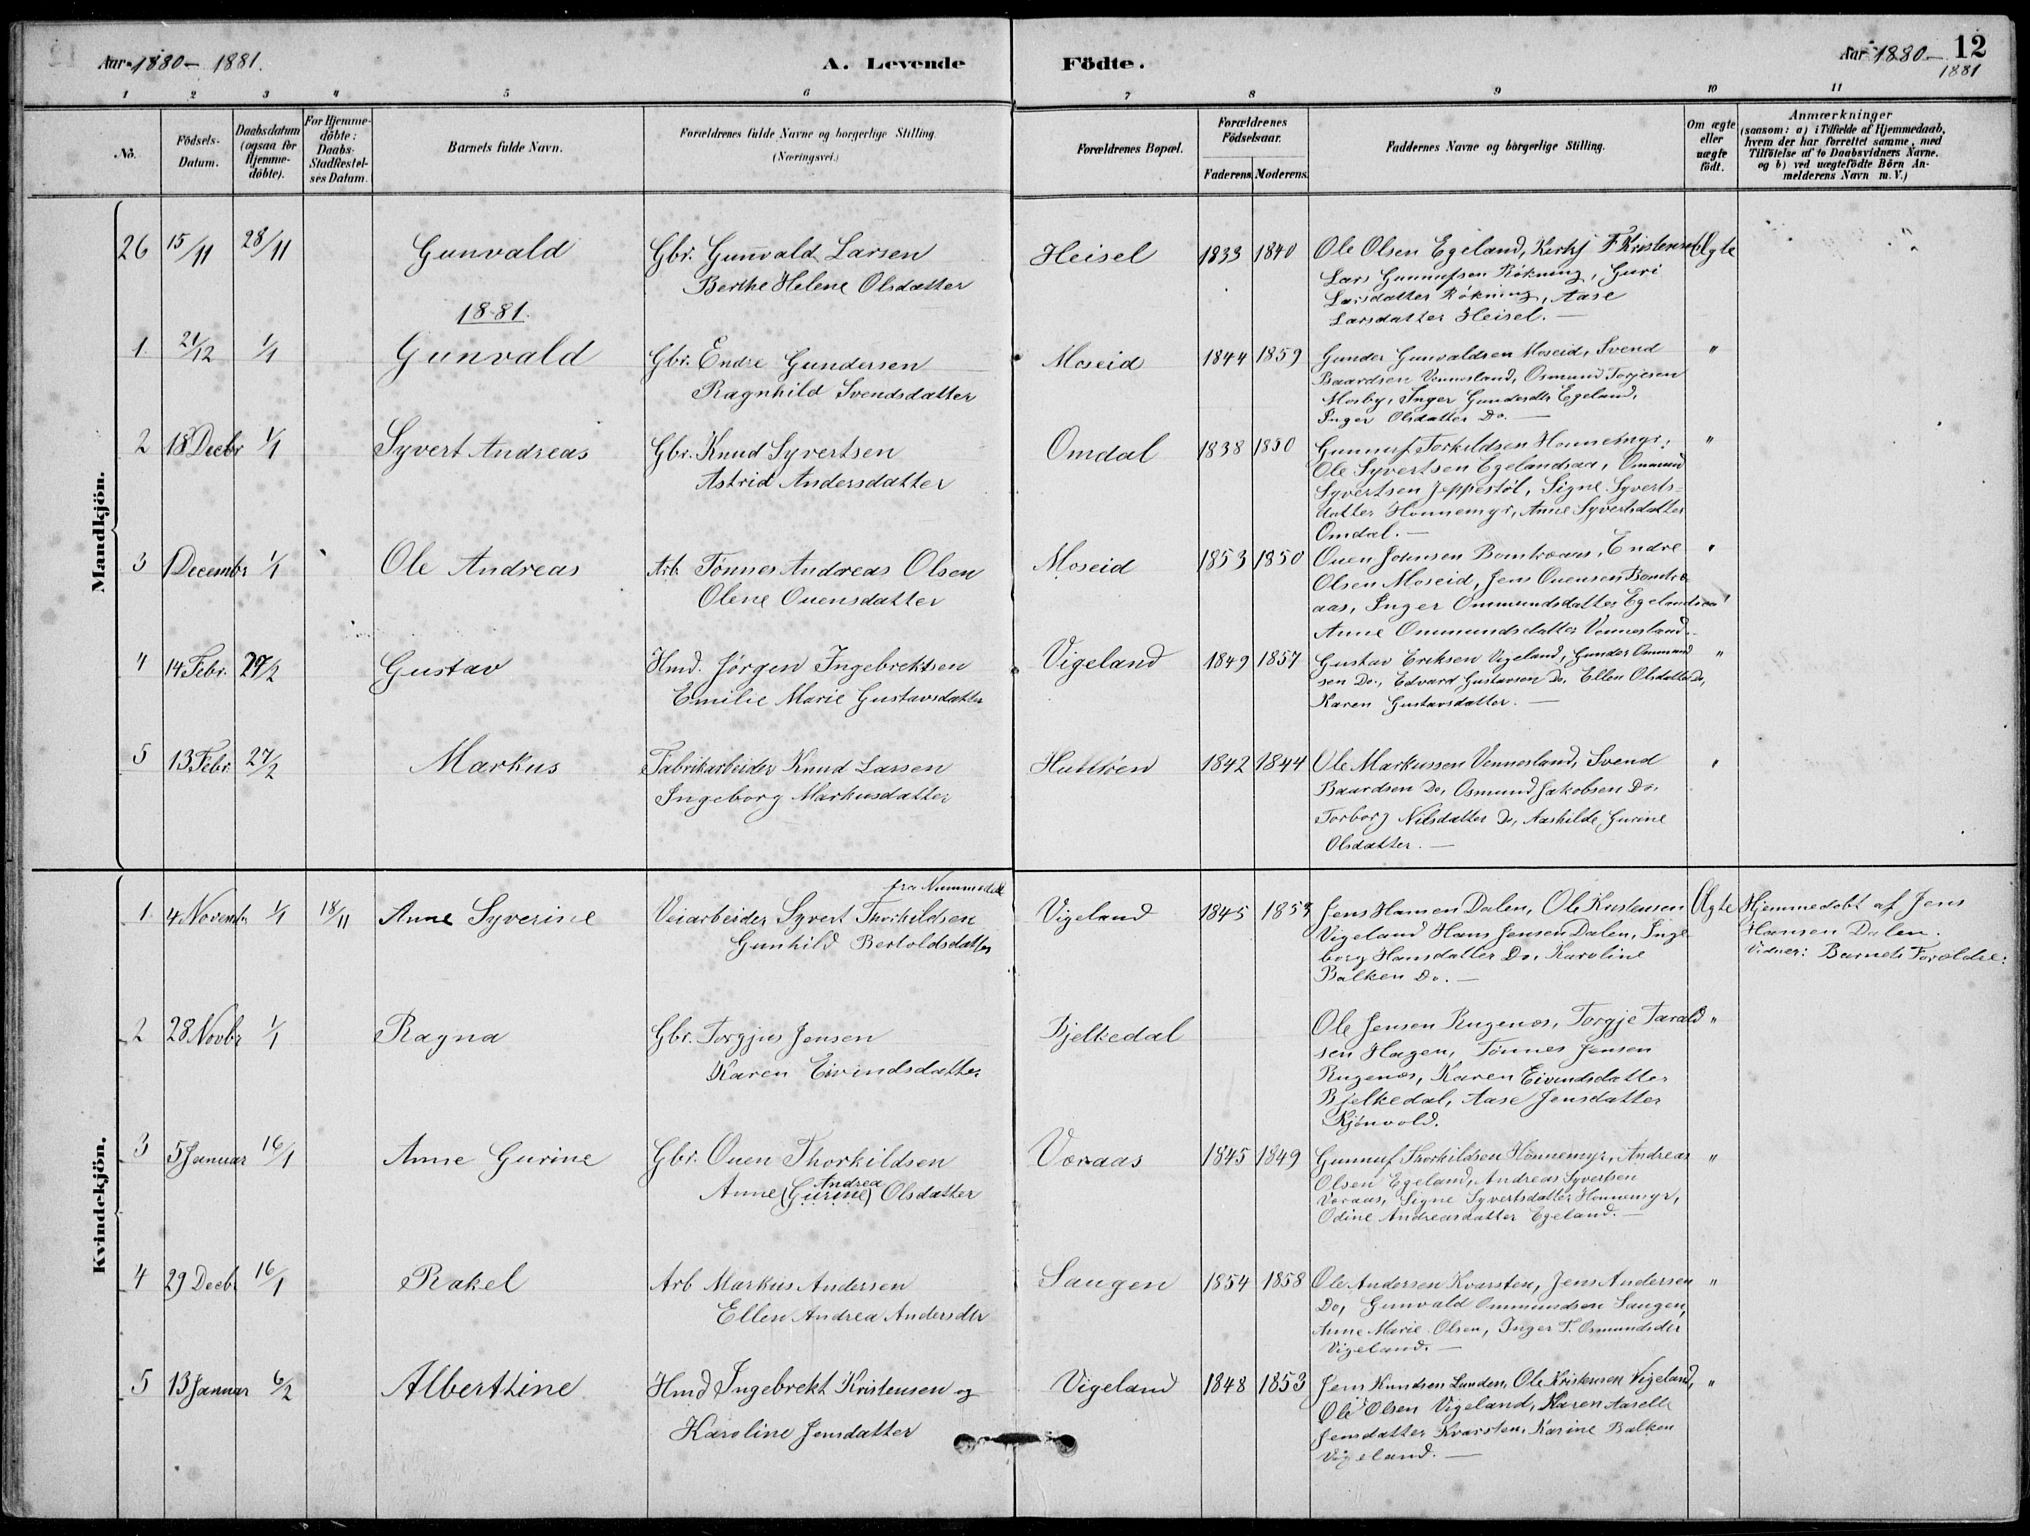 Aar 1880-1881.
A. Levende
Födte.
Aar 1880-
1881
12
1 2 3 4 5 6 7 8 9 10 11
No.
Födsels-
Datum.
Daabsdatum
(ogsaa for
Hjemme-
döbte).
For Hjemme-
döbte:
Daabs-
Stadfæstel-
ses Datum.
Barnets fulde Navn.
Forældrenes fulde Navne og borgerlige Stilling.
(Næringsvei.)
Forældrenes Bopæl.
Forældrenes
Födselsaar.
Faderens. Moderens.
Faddernes Navne og borgerlige Stilling.
Om ægte
eller
uægte
födt.
Anmærkninger
(saasom: a) i Tilfælde af Hjemmedaab,
hvem der har forrettet samme, med
Tilföielse af to Daabsvidners Navne.
og b) ved uægtefödte Börn An-
melderens Navn m. V.)
Mandkjön.
26 15/11 28/11 Gunvald Gbr. Gunvald Larsen Heisel 1833 1840 Ole Olsen Egeland, Kirks. F. Kristensen Ægte
Berthe Helene Olsdatter Lars Gunnufsen Røkning, Guri
Larsdatter Røkning, Aase
Larsdatter Heisel. —
1881.
1. 21/12 1/1 Gunvald Gbr. Endre Gundersen Moseid 1844 1859 Gunder Gunvaldsen Moseid, Svend "
Ragnhild Svendsdatter Baardsen Vennesland, Osmund Torjesen
Mosby, Inger Gundersdtr Egeland,
Inger Olsdatter Do. —
2 18 Decbr 1/1 Syvert Andreas Gbr. Knud Syvertsen Omdal 1838 1850 Gunnuf Torkildsen Honnemyr, "
Astrid Andersdatter Ole Syvertsen Egelandsaa, Ommund
Syvertsen Jeppestøl, Signe Syverts-
datter Honnemyr, Anne Syvertsdatter
Omdal. —
3 1 Decembr 1/1 Ole Andreas Arb. Tønnes Andreas Olsen Moseid 1853 1850 Ouen Johnsen Bomtraas, Endre "
Olene Ouensdatter Olsen Moseid, Jens Ouensen Bomtra-
aas, Inger Ommundsdatter Egelandsaa
Anne Ommundsdatter Vennesland.
4 14 Febr. 27/2 Gustav Hmd. Jørgen Ingebrektsen Vigeland 1849 1857 Gustav Eriksen Vigeland, Gunder Ommund "
Emilie Marie Gustavsdatter sen Do., Edvard Gustavsen Do, Ellen Olsdatter Do,
Karen Gustavsdatter. —
5 13 Febr 27/2 Markus Fabrikarbeider Knud Larsen 1842 1844 Ole Markussen Vennesland, Svend "
Ingeborg Markusdatter Baardsen Do, Osmund Jakobsen Do,
Torborg Nilsdatter Do, Aashilde Gurine
Olsdatter. —
Kvindekjön.
fra Nummedal
1. 4 Novembr 1/1 18/11 Anne Syverine Veiarbeider Syvert Thorkildsen Vigeland 1845 1853 Jens Hansen Dalen, Ole Kristensen Ægte Hjemmedøbt af Jens
Gunhild Bertoldsdatter Vigeland Hans Jensen Dalen, Inge Hansen Dalen.
borg Hansdatter Do, Karoline Vidner: Barnets Forældre.
Balken Do. —
2 28 Novbr 1/1 Ragna Gbr. Torgjus Jensen Bjelkedal Ole Jensen Rugenes, Torgje Tarald "
Karen Eivindsdatter sen Hagen, Tønnes Jensen
Rugenes, Karen Eivindsdatter
Bjelkedal, Aase Jensdatter
Kjønvold.
3 5 Januar 16/1 Anne Gurine Gbr. Ouen Thorkildsen Voraas 1845 1849 Gunnuf Thorkildsen Honnemyr, Andreas "
Andrea
Anne (Gurine) Olsdatter Olsen Egeland, Andreas Syvertsen
Voraas, Signe Syvertsdatter Honnemyr,
Odine Andreasdatter Egeland. —
4 29 Decbr 16/1 Rakel Arb Markus Andersen Saugen 1854 1858 Ole Andersen Kvarsten, Jens Andersen "
Ellen Andrea Andersdtr Do, Gunvald Ommundsen Saugen,
Anne Marie Olsen, Inger T. Osmundsdtr
Vigeland. —
5 13 Januar 6/2 Alberttine Hmd Ingebrekt Kristensen og Vigeland 1848 1853 Jens Knudsen Lunden, Ole Kristensen Vigeland, "
Karoline Jensdatter Ole Olsen Vigeland, Karen Aaselle
Jensdatter Kvarsten, Karine Balken
Vigeland. —